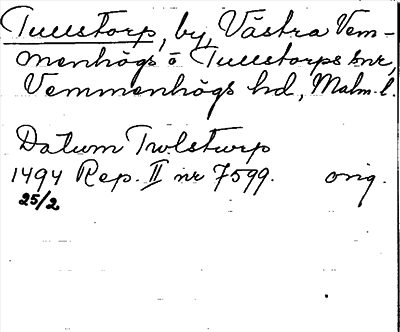 Tullstorp, by, Västra Vem-
menhögs o Tullstorps snr,
Vemmenhögs hd, Malm. l.
Datum Twlsturp
1494 Rep. II nr 7599. orig.
25/2